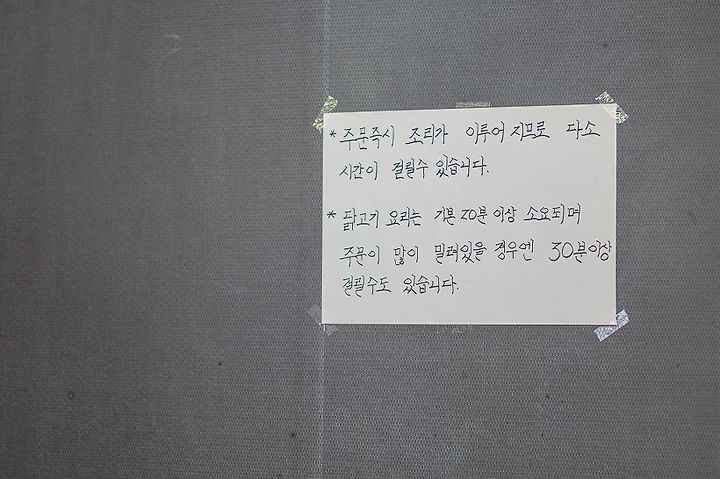 * 주문즉시 조리가 이루어지므로 다소
시간이 걸릴수 있습니다.
* 닭고기 요리는 기본 20분 이상 소요되며
주문이 많이 밀려있을 경우엔 30분이상
걸릴수도 있습니다.